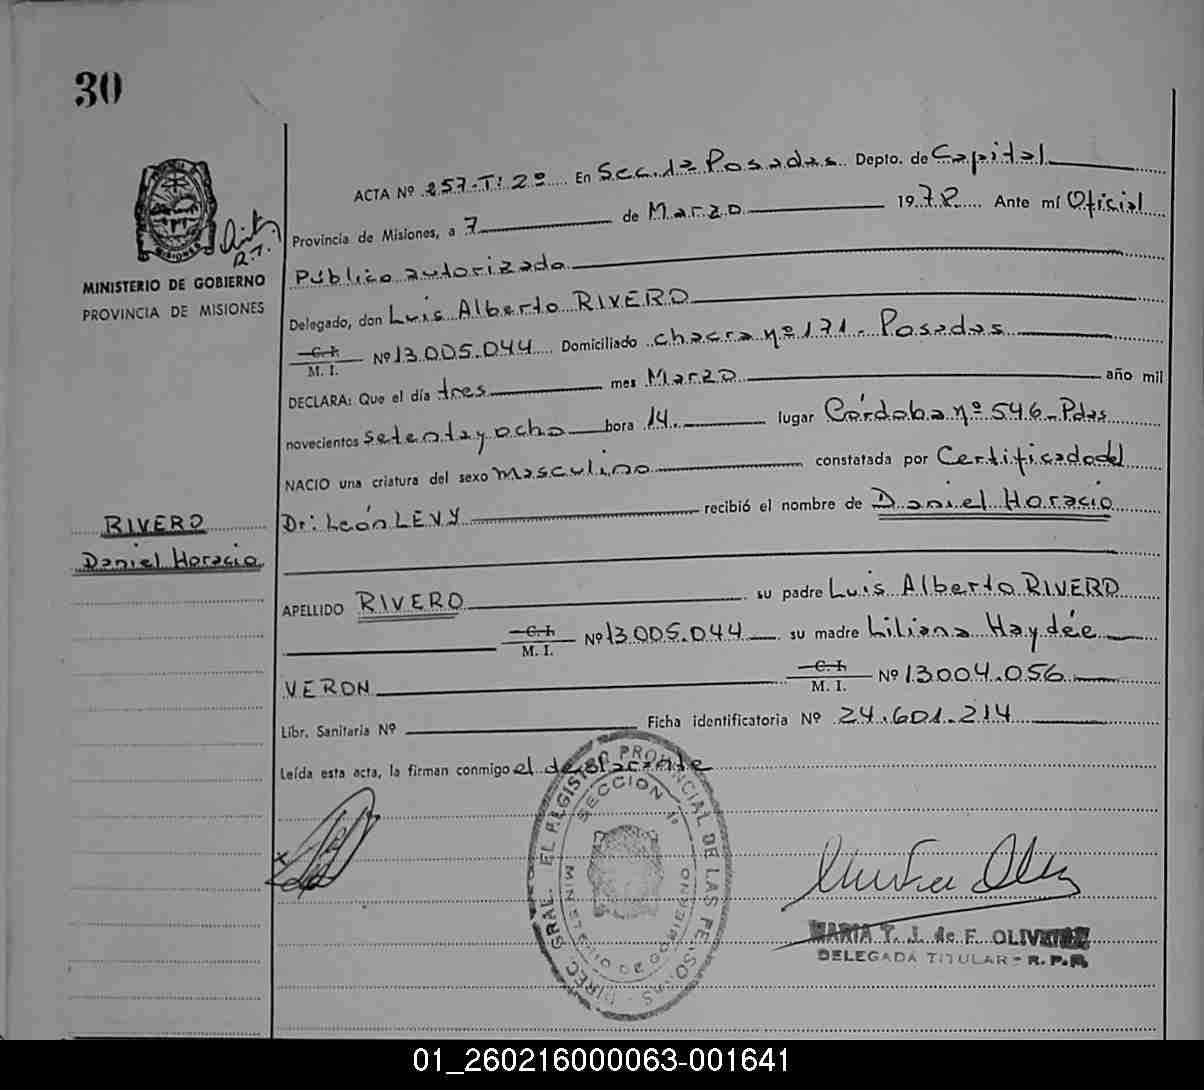 30
MINISTERIO DE GOBIERNO
PROVINCIA DE MISIONES
ACTA Nº 257-T: 2º En Secc. 1ª Posadas Depto. de Capital
Provincia de Misiones, a 7 de Marzo 1978 Ante mí Oficial
Público autorizada
Delegado, don Luis Alberto RIVERO
C. I. M. I. Nº 13.005.044 Domiciliado chacra nº 171 - Posadas
DECLARA: Que el día tres mes Marzo año mil
novecientos setenta y ocho hora 14. lugar Córdoba nº 546 - Pdas
NACIO una criatura del sexo Masculino constatada por Certificado del
Dr: León LEVY recibió el nombre de Daniel Horacio
RIVERO
Daniel Horacio
APELLIDO RIVERO su padre Luis Alberto RIVERO
C. I. M. I. Nº 13.005.044 su madre Liliana Haydée
VERON C. I. M. I. Nº 13.004.056
Libr. Sanitaria Nº Ficha identificatoria Nº 24.601.214
Leída esta acta, la firman conmigo el declarante
DIREC. GRAL. EL REGISTRO PROVINCIAL DE LAS PERSONAS
SECCION 1ª
MINISTERIO DE GOBIERNO
MARIA T. J. de F. OLIVEIRA
DELEGADA TITULAR - R. P. P.
01_260216000063-001641